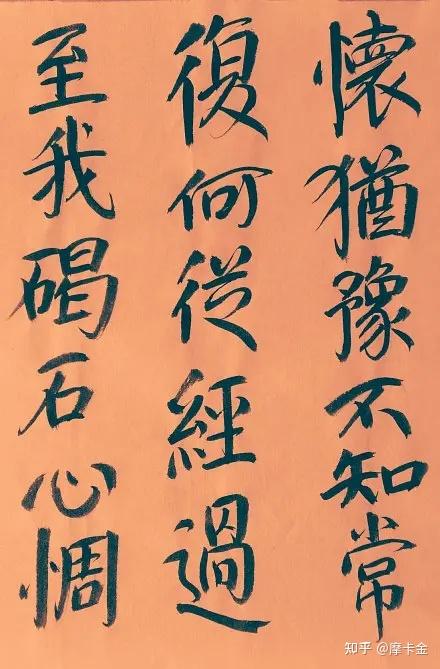 懷猶豫不知常
復何從經過
至我碣石心惆
知乎 @摩卡金